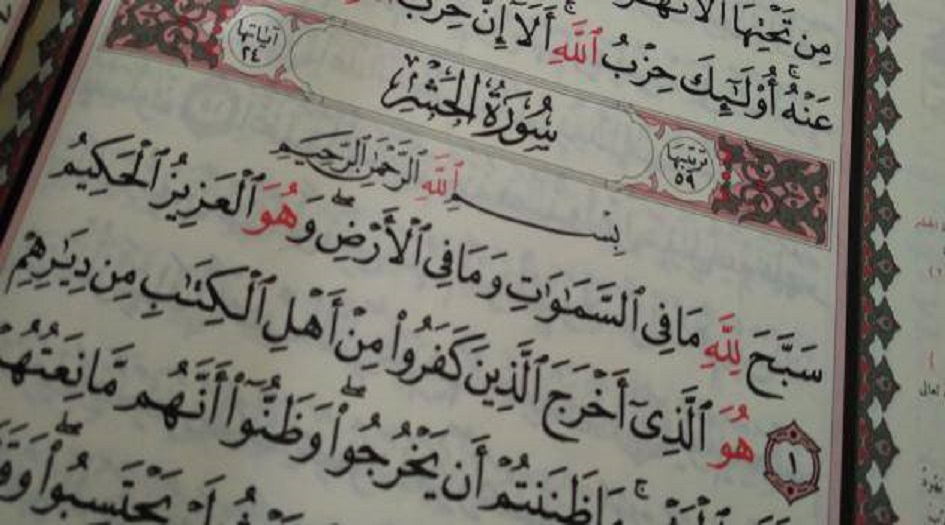 مِن تَحْتِهَا ٱلْأَنْهَٰرُ
عَنْهُ أُو۟لَٰٓئِكَ حِزْبُ ٱللَّهِ أَلَآ إِنَّ حِزْبَ
ترتيبها ٥٩
سُورَةُ الحَشْرِ
آياتها ٢٤
بِسْمِ ٱللَّهِ ٱلرَّحْمَٰنِ ٱلرَّحِيمِ
سَبَّحَ لِلَّهِ مَا فِى ٱلسَّمَٰوَٰتِ وَمَا فِى ٱلْأَرْضِ وَهُوَ ٱلْعَزِيزُ ٱلْحَكِيمُ
١ هُوَ ٱلَّذِىٓ أَخْرَجَ ٱلَّذِينَ كَفَرُوا۟ مِنْ أَهْلِ ٱلْكِتَٰبِ مِن دِيَٰرِهِمْ
مَا ظَنَنتُمْ أَن يَخْرُجُوا۟ وَظَنُّوٓا۟ أَنَّهُم مَّانِعَتُهُمْ
يَحْتَسِبُوا۟